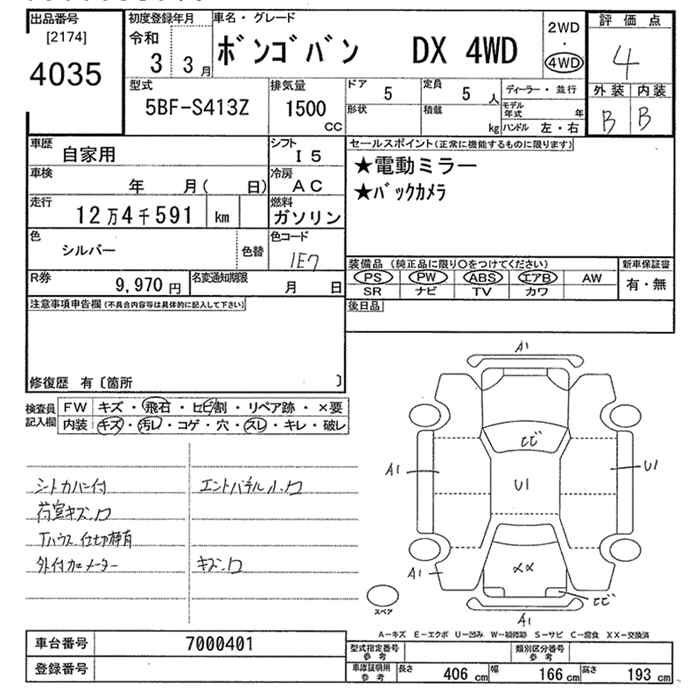 出品番号 初度登録年月 車名・グレード 2WD 評価点
[2174] 令和 ・
4035 3 3月 ﾎﾞﾝｺﾞﾊﾞﾝ DX 4WD 4WD 4
型式 排気量 ドア 5 定員 5人 ディーラー・並行 外装 内装
5BF-S413Z 1500 CC 形状 積載 kg モデル年式 年 B B
ハンドル 左・右
車歴 自家用 シフト I5 セールスポイント(正常に機能するものに限ります)
車検 年 月( 日) 冷房 AC ★電動ミラー
走行 12万4千591 km 燃料 ガソリン ★ﾊﾞｯｸｶﾒﾗ
色 シルバー 色替 色コード 1E7
装備品 (純正品に限り○をつけてください) 新車保証書
R券 9,970円 名変通知期限 月 日 PS PW ABS エアB AW 有・無
SR ナビ TV カワ
注意事項申告欄(不具合内容等は具体的に記入して下さい) 後日品
修復歴 有〔箇所 〕
検査員記入欄 FW キズ・飛石・ヒビ割・リペア跡・×要
内装 キズ・汚レ・コゲ・穴・スレ・キレ・破レ
シートカバー付
荷室キズ
外付カメーター キズ
A1
ヒビ
A1 U1 U1
××
A1 ヒビ
A1
スペア
A-キズ E-エクボ U-凹み W-補修跡 S-サビ C-腐食 XX-交換済
車台番号 7000401 型式指定番号 参考 類別区分番号 参考
登録番号 車庫証明用 参考 長さ 406cm 幅 166cm 高さ 193cm